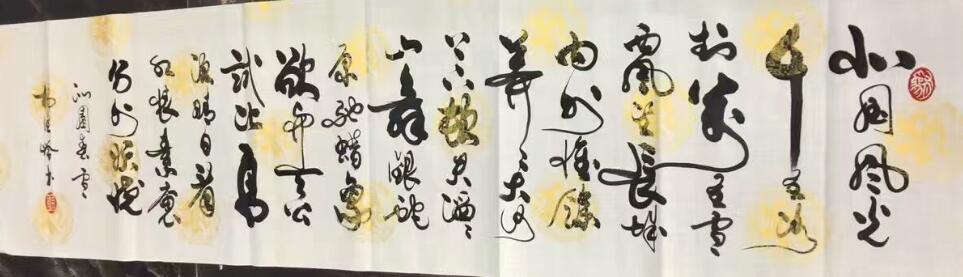 北国风光
千里冰
封万里雪
飘望长城
内外惟馀
莽莽大河
上下顿失滔滔
山舞银蛇
原驰蜡象
欲与天公
试比高
须晴日看
红装素裹
分外妖娆
沁園春雪